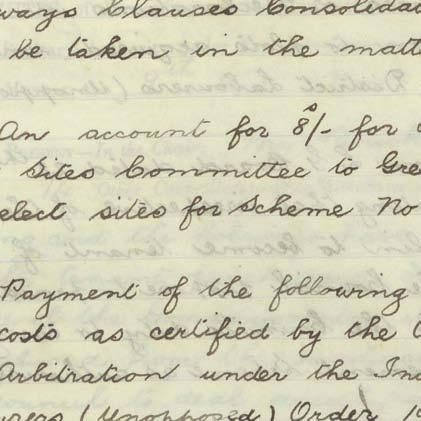 ways Clauses Consolida
be taken in the matt
An account for 8/- for
Sites Committee to Gre
elect sites for Scheme No
Payment of the following
costs as certified by the
Arbitration under the
urers (Unopposed) Order 19